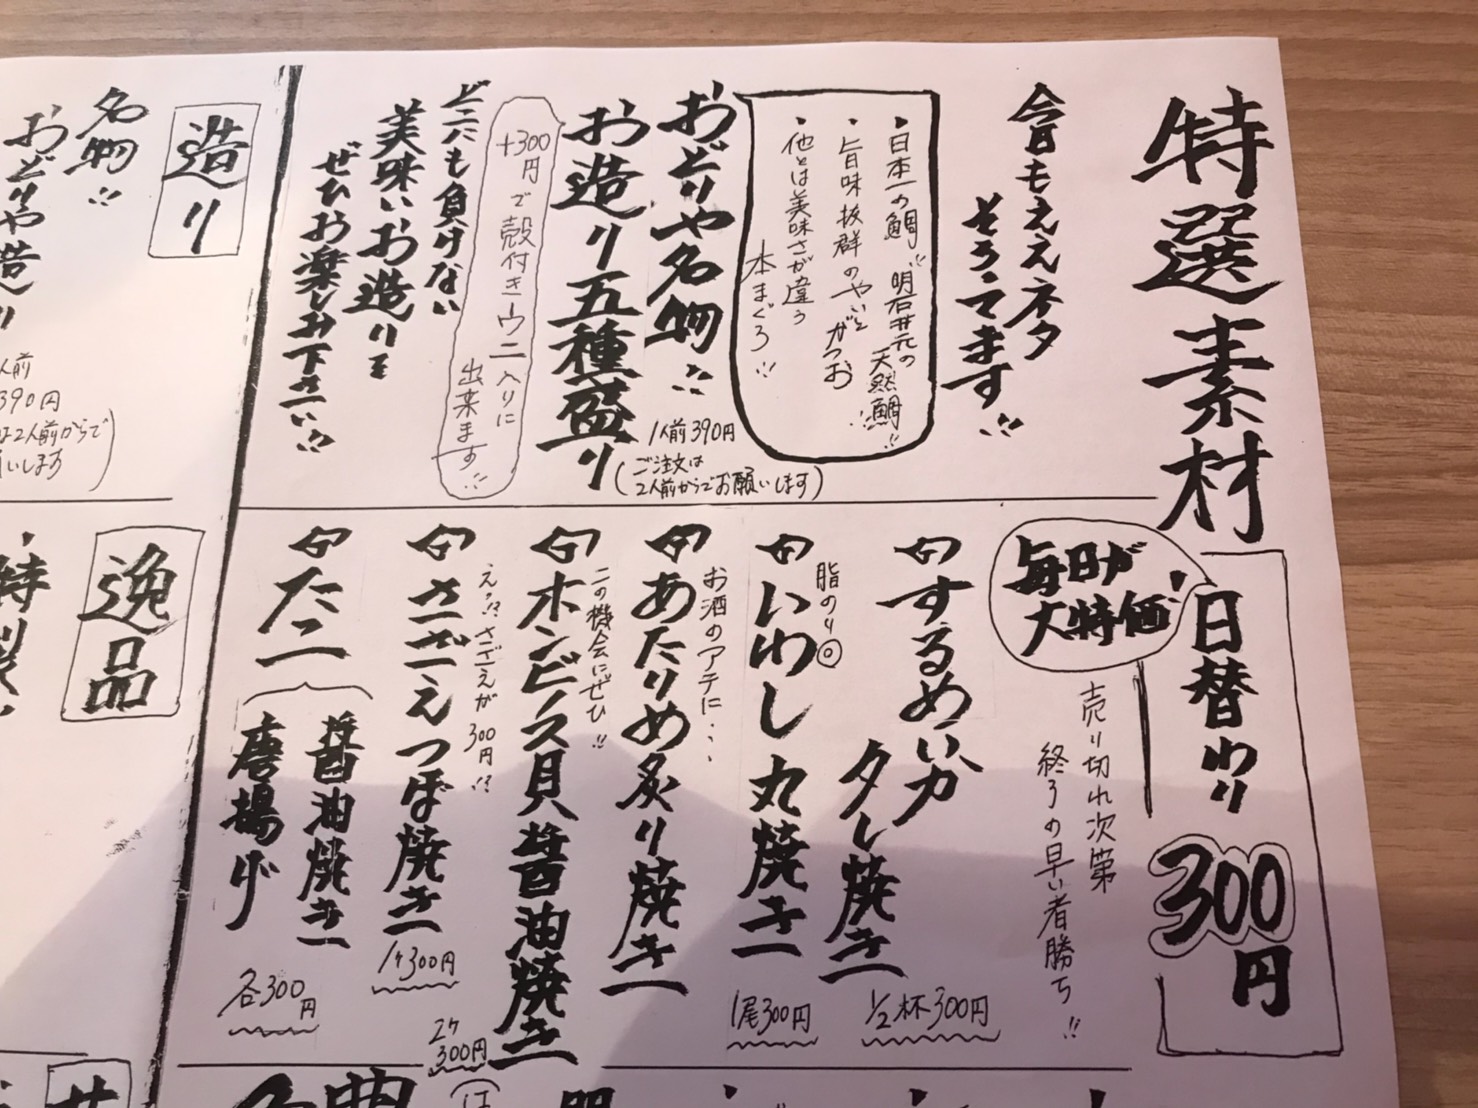 特選素材
今日もええネタ
そろってます!!
・日本一の鯛!!明石井元の
天然鯛!!
・旨味抜群のやいと
がつお
・他とは美味さが違う
本まぐろ!!
おどりや名物!!
お造り五種盛り
1人前390円
(ご注文は
2人前からでお願いします)
+300円で殻付きウニ入りに
出来ます!!
どこにも負けない
美味いお造りを
ぜひお楽しみ下さい!!
日替わり300円
毎日が
大特価!
売り切れ次第
終了の早い者勝ち!!
するめいか
タレ焼き
1/2杯300円
脂のり◎
いわし丸焼き
1尾300円
お酒のアテに・・・
あたりめ炙り焼き
この機会にぜひ!!
ホンビノス貝醤油焼き
2ケ
300円
え!?さざえが300円!?
さざえつぼ焼き
1ケ300円
たこ
醤油焼き
唐揚げ
各300円
造り
名物!!
おどりや造り
人前
390円
は2人前からで
願いします
逸品